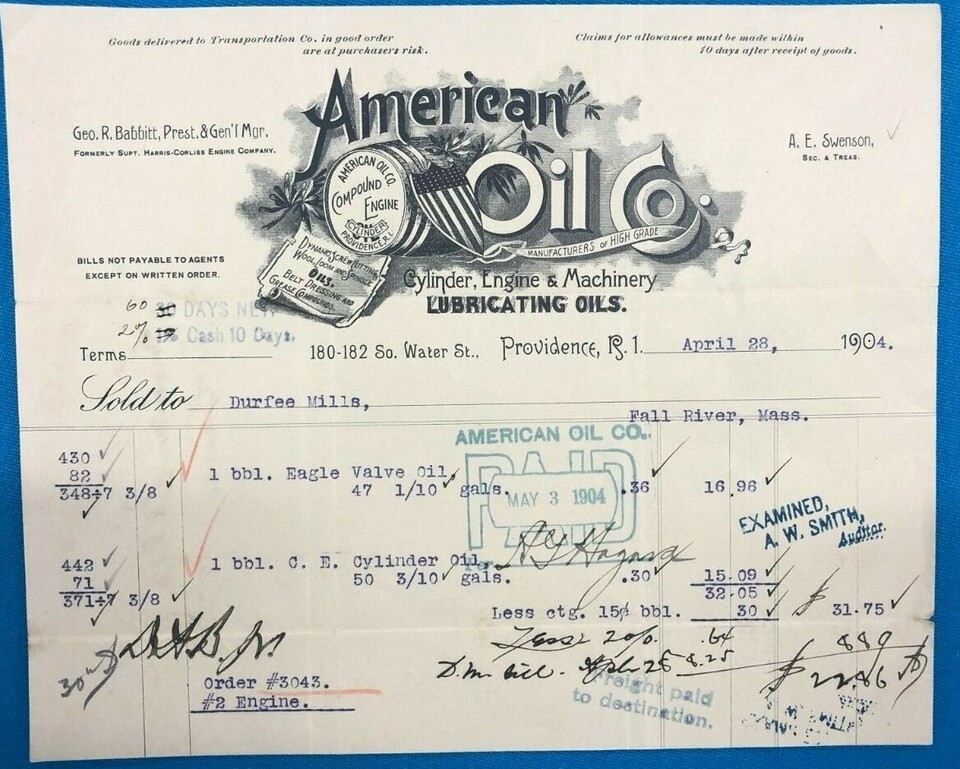 Goods delivered to Transportation Co. in good order
are at purchasers risk.
Claims for allowances must be made within
10 days after receipt of goods.
American
Oil Co.
Geo. R. Babbitt, Prest. & Gen'l Mgr.
Formerly Supt. Harris-Corliss Engine Company.
A. E. Swenson,
Sec. & Treas.
AMERICAN OIL CO.
COMPOUND
ENGINE
CYLINDER
OIL
PROVIDENCE, R.I.
MANUFACTURERS OF HIGH GRADE
BILLS NOT PAYABLE TO AGENTS
EXCEPT ON WRITTEN ORDER.
Dynamo, Screw Cutting
Wool, Loom and Spindle
OILS.
Belt Dressing and
Grease Compounds.
Cylinder, Engine & Machinery
LUBRICATING OILS.
60 30 DAYS NET
2% 1% Cash 10 Days.
Terms
180-182 So. Water St., Providence, R. I. April 28, 1904.
Sold to Durfee Mills,
Fall River, Mass.
AMERICAN OIL CO.
PAID
MAY 3 1904
430
82 1 bbl. Eagle Valve Oil,
348÷7 3/8 47 1/10 gals. .36 16.96
EXAMINED,
A. W. SMITH,
Auditor.
442 1 bbl. C. E. Cylinder Oil,
71 50 3/10 gals. .30 15.09
371÷7 3/8 32.05
Less ctg. 15¢ bbl. 30 $ 31.75
Less 2% .64 8 89
8.25
$ 22.86
30
Order #3043.
#2 Engine.
Freight paid
to destination.